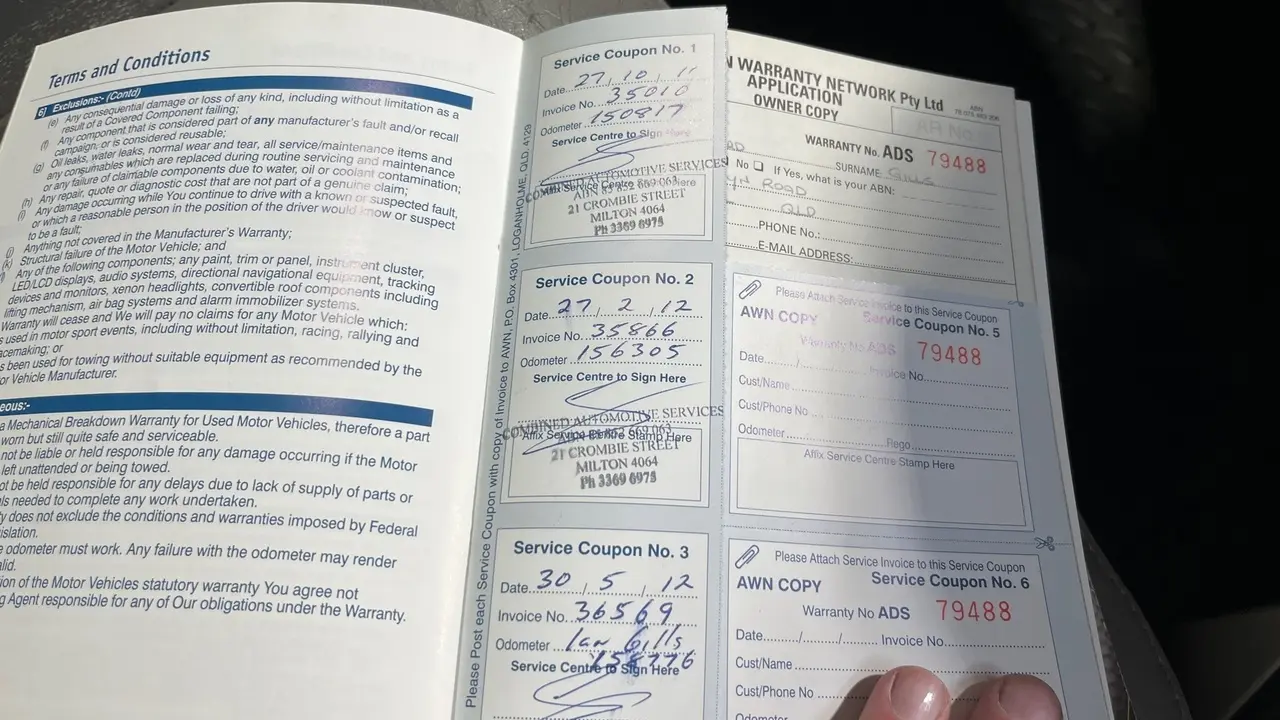 Terms and Conditions
6) Exclusions:- (Contd)
(e) Any consequential damage or loss of any kind, including without limitation as a
result of a Covered Component failing;
(f) Any component that is considered part of any manufacturer's fault and/or recall
campaign, or is considered reusable;
(g) Oil leaks, water leaks, normal wear and tear, all service/maintenance items and
any consumables which are replaced during routine servicing and maintenance
or any failure of claimable components due to water, oil or coolant contamination;
(h) Any repair, quote or diagnostic cost that are not part of a genuine claim;
(i) Any damage occurring while You continue to drive with a known or suspected fault,
or which a reasonable person in the position of the driver would know or suspect
to be a fault;
(j) Anything not covered in the Manufacturer's Warranty;
(k) Structural failure of the Motor Vehicle; and
Any of the following components; any paint, trim or panel, instrument cluster,
LED/LCD displays, audio systems, directional navigational equipment, tracking
devices and monitors, xenon headlights, convertible roof components including
lifting mechanism, air bag systems and alarm immobilizer systems.
Warranty will cease and We will pay no claims for any Motor Vehicle which:
used in motor sport events, including without limitation, racing, rallying and
pacemaking; or
s been used for towing without suitable equipment as recommended by the
or Vehicle Manufacturer.
eous:-
a Mechanical Breakdown Warranty for Used Motor Vehicles, therefore a part
worn but still quite safe and serviceable.
not be liable or held responsible for any damage occurring if the Motor
left unattended or being towed.
ot be held responsible for any delays due to lack of supply of parts or
ls needed to complete any work undertaken.
y does not exclude the conditions and warranties imposed by Federal
islation.
e odometer must work. Any failure with the odometer may render
alid.
ion of the Motor Vehicles statutory warranty You agree not
g Agent responsible for any of Our obligations under the Warranty.
Please Post each Service Coupon with copy of Invoice to AWN, P.O. Box 4301, LOGANHOLME, QLD. 4129
Service Coupon No. 1
Date 27 / 10 / 11
Invoice No. 35010
Odometer 150817
Service Centre to Sign Here
COMBINED AUTOMOTIVE SERVICES
Affix Service Centre Stamp Here
ABN 85 852 669 063
21 CROMBIE STREET
MILTON 4064
Ph 3369 6975
Service Coupon No. 2
Date 27 / 2 / 12
Invoice No. 35866
Odometer 156305
Service Centre to Sign Here
COMBINED AUTOMOTIVE SERVICES
Affix Service Centre Stamp Here
ABN 85 852 669 063
21 CROMBIE STREET
MILTON 4064
Ph 3369 6975
Service Coupon No. 3
Date 30 / 5 / 12
Invoice No. 36569
Odometer Ian Gills
158776
Service Centre to Sign Here
N WARRANTY NETWORK Pty Ltd
APPLICATION
OWNER COPY
ABN
WARRANTY No. ADS 79488
RD
SURNAME: GILLS
No If Yes, what is your ABN:
YN ROAD
QLD
PHONE No.:
E-MAIL ADDRESS:
Please Attach Service Invoice to this Service Coupon
AWN COPY Service Coupon No. 5
Warranty No ADS 79488
Date / / Invoice No
Cust/Name
Cust/Phone No
Odometer Rego
Affix Service Centre Stamp Here
Please Attach Service Invoice to this Service Coupon
AWN COPY Service Coupon No. 6
Warranty No ADS 79488
Date / / Invoice No
Cust/Name
Cust/Phone No
Odometer